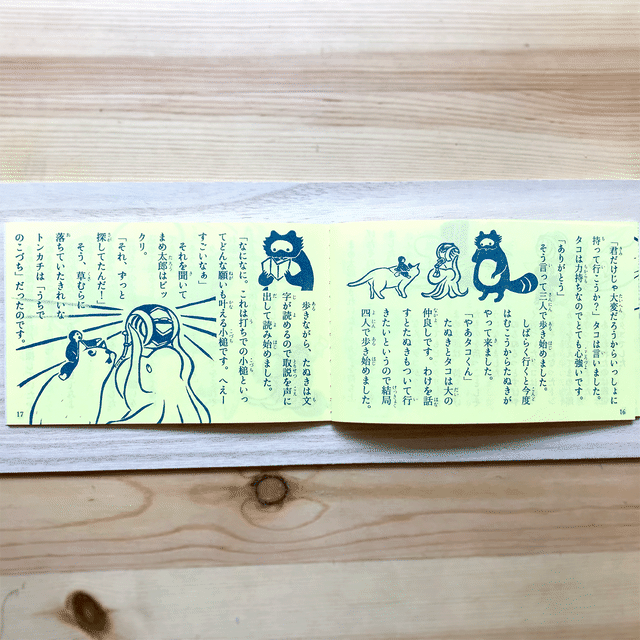 「君だけじゃ大変だろうからいっしょに
持って行こうか？」タコは言いました。
タコは力持ちなのでとても心強いです。
「ありがとう」
そう言って三人で歩き始めました。
しばらく行くと今度
はむこうからたぬきが
やって来ました。
「やあタコくん」
たぬきとタコは大の
仲良しです。わけを話
すとたぬきもついて行
きたいというので結局
四人で歩き始めました。
16
歩きながら、たぬきは文
字が読めるので取説を声に
出して読み始めました。
「なになに。これは打ちでの小槌といっ
てどんな願いも叶える小槌です。へえー
すごいなぁ」
それを聞いて
まめ太郎はピッ
クリ。
「それ、ずっと
探してたんだ！」
そう、草むらに
落ちていたきれいな
トンカチは「うちで
のこづち」だったのです。
17